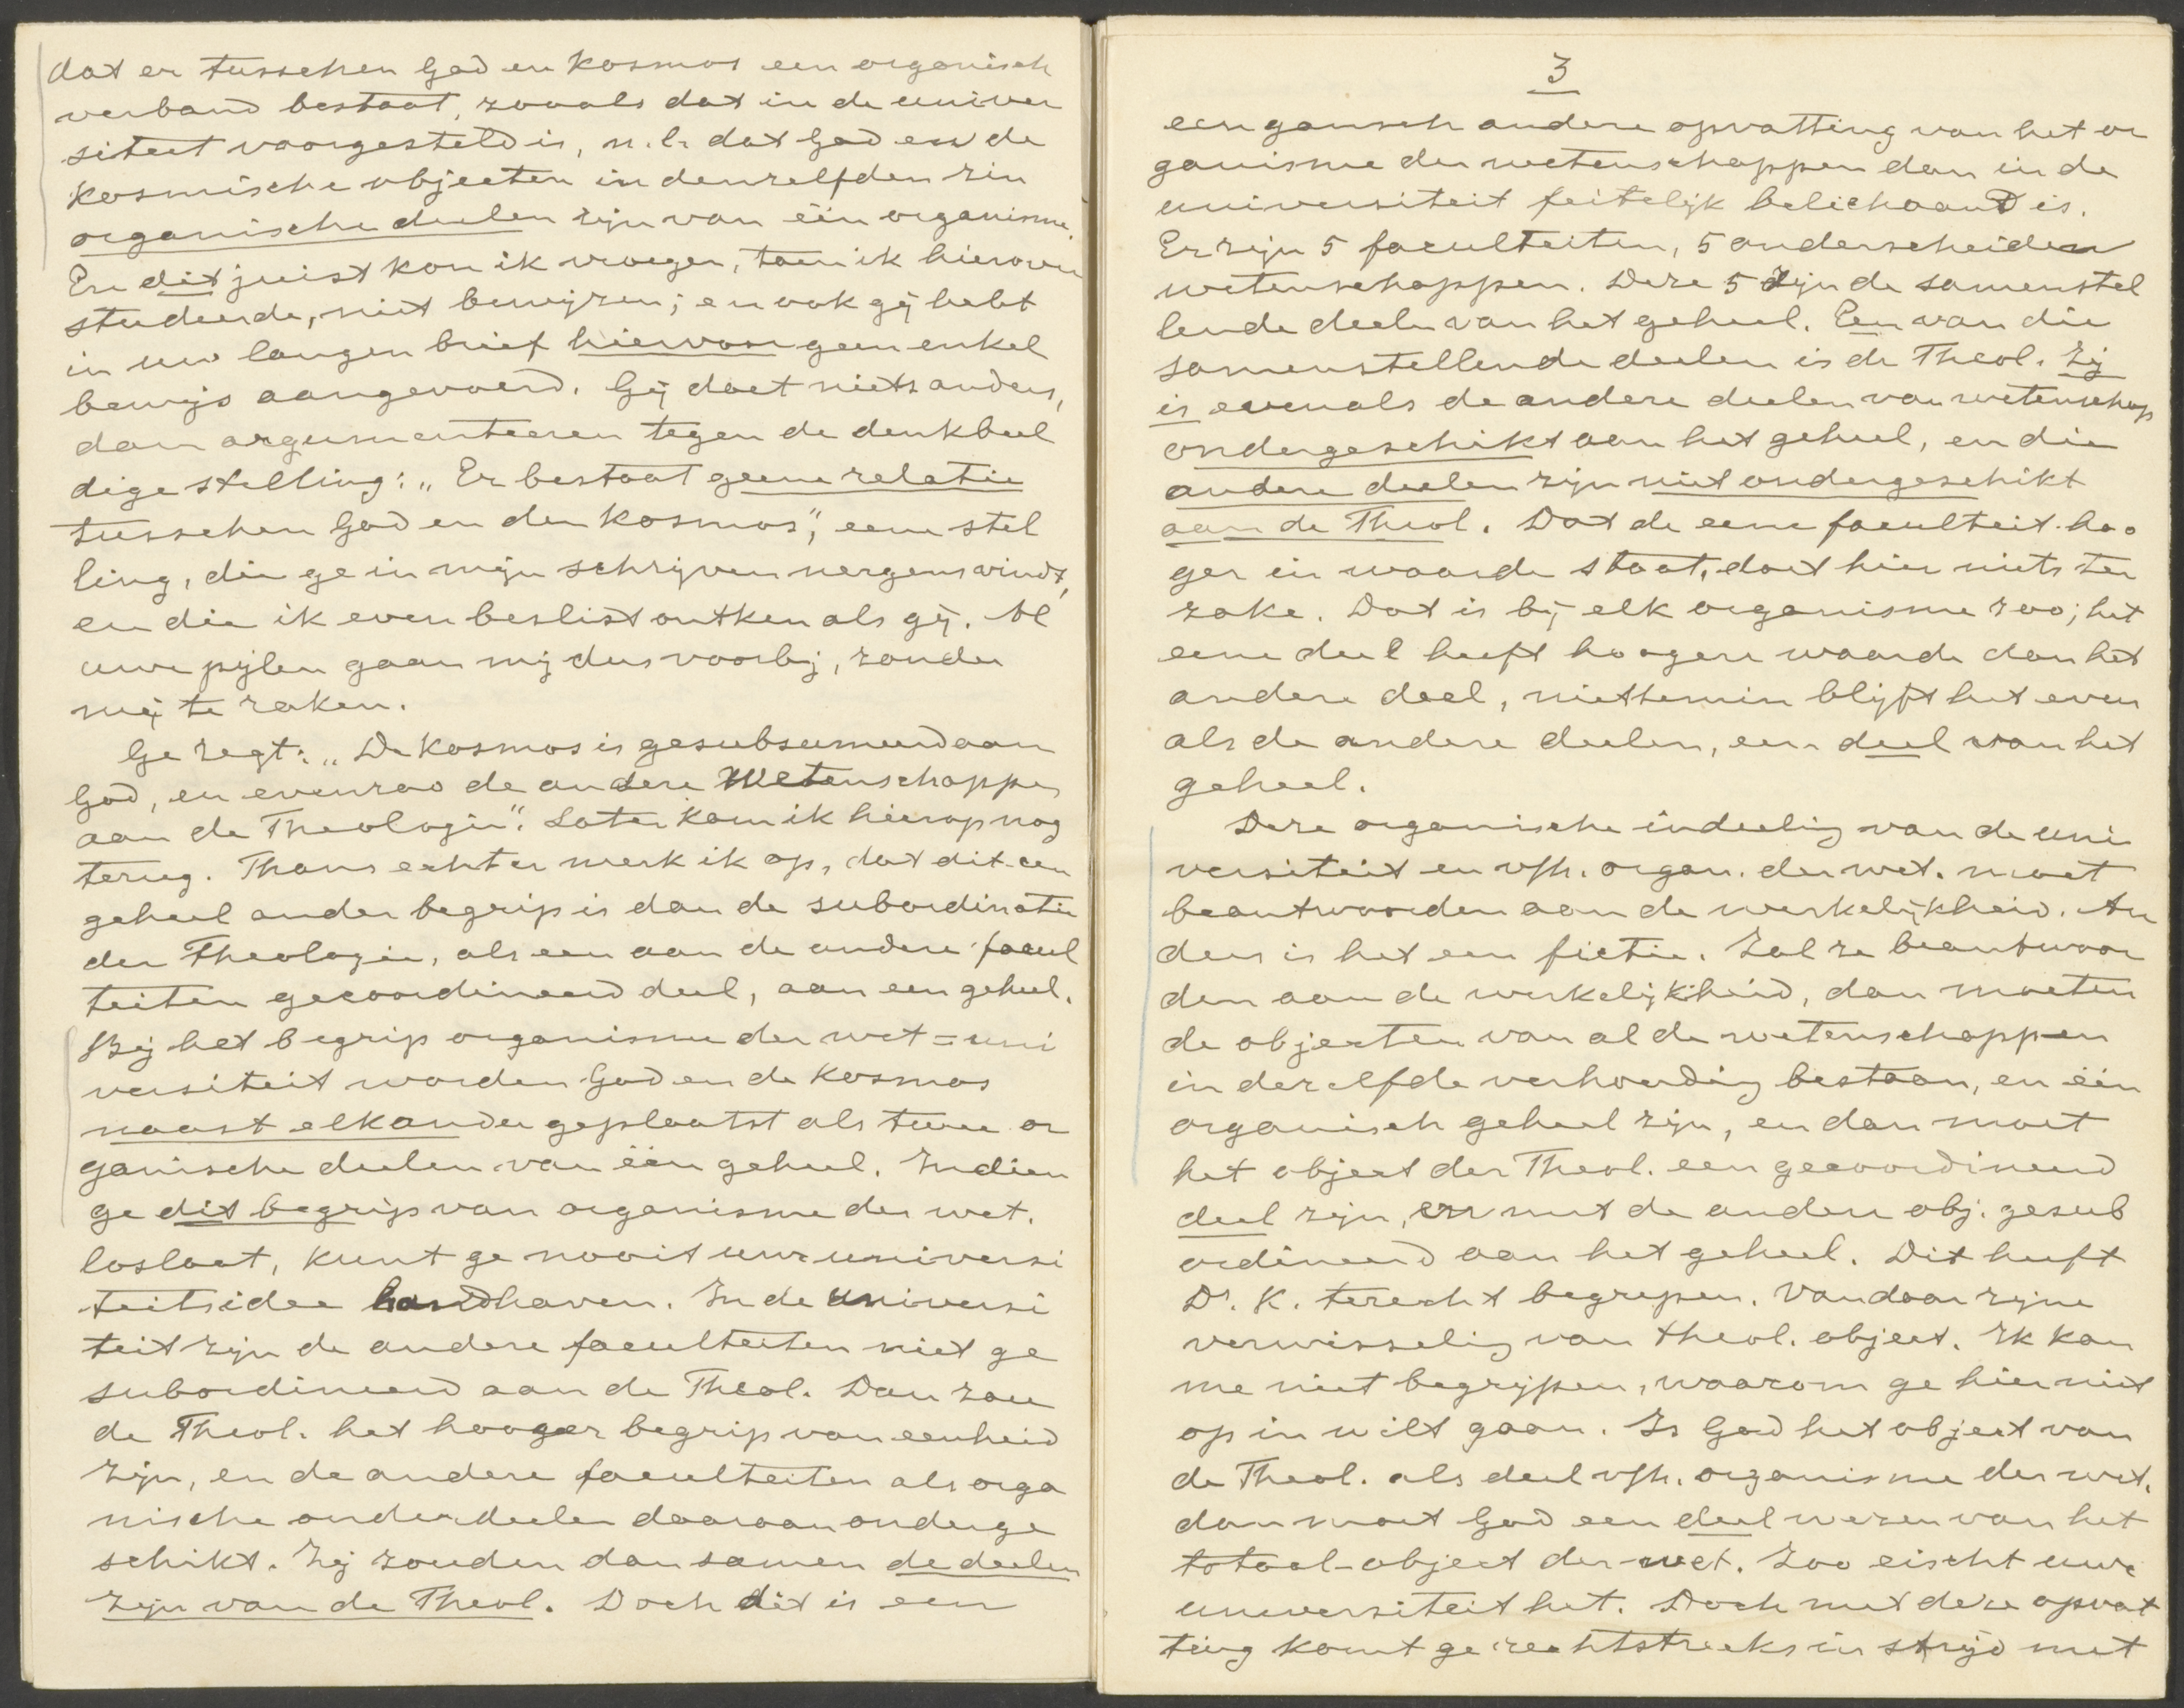 dat er tusschen God en Kosmos een organisch
verband bestaat, zooals dat in de univer
siteit voorgesteld is, n.l. dat God en de
Kosmische objecten in denzelfden zin
organische deelen zijn van één organisme.
En dit juist kon ik vroeger, toen ik hierover
studeerde, niet bewijzen; en ook gij hebt
in uw langen brief hiervoor geen enkel
bewijs aangevoerd. Gij doet niets anders,
dan argumenteeren tegen de denkbeel
dige stelling: „Er bestaat geene relatie
tusschen God en den Kosmos", eene stel
ling, die ge in mijn schrijven nergens vindt,
en die ik even beslist ontken als gij. Al
uwe pijlen gaan mij dus voorbij, zonder
mij te raken.
Ge zegt: „De Kosmos is gesubsumeerd aan
God, en evenzoo de andere Wetenschappen
aan de Theologie". Later kom ik hierop nog
terug. Thans echter merk ik op, dat dit een
geheel ander begrip is dan de subordinatie
der Theologie, als een aan de andere facul
teiten gecoordineerd deel, aan een geheel.
Bij het begrip organisme der wet = uni
versiteit worden God en de Kosmos
naast elkander geplaatst als twee or
ganische deelen van één geheel. Indien
ge dit begrip van organisme der wet.
loslaat, kunt ge nooit uwe universi
teitsidee handhaven. In de universi
teit zijn de andere faculteiten niet ge
subordineerd aan de Theol. Dan zou
de Theol. het hooger begrip van eenheid
zijn, en de andere faculteiten als orga
nische onderdeelen daaraan onderge
schikt. Zij zouden dan samen de deelen
zijn van de Theol. Doch dit is een
3
een gansch andere opvatting van het or
ganisme der wetenschappen dan in de
universiteit feitelijk belichaamd is.
Er zijn 5 faculteiten, 5 onderscheiden
wetenschappen. Deze 5 zijn de samenstel
lende deelen van het geheel. Een van die
samenstellende deelen is de Theol. Zij
is evenals de andere deelen van wetenschap
ondergeschikt aan het geheel, en die
andere deelen zijn niet ondergeschikt
aan de Theol. Dat de eene faculteit hoo
ger in waarde staat, doet hier niets ter
zake. Dat is bij elk organisme zoo; het
eene deel heeft hoogere waarde dan het
andere deel, niettemin blijft het even
als de andere deelen, een deel van het
geheel.
Deze organische indeeling van de uni
versiteit en v/h. organ. der wet. moet
beantwoorden aan de werkelijkheid. An
ders is het een fictie. Zal ze beantwoor
den aan de werkelijkheid, dan moeten
de objecten van al de wetenschappen
in dezelfde verhouding bestaan, en één
organisch geheel zijn, en dan moet
het object der Theol. een gecoordineerd
deel zijn, en met de andere obj. gesub
ordineerd aan het geheel. Dit heeft
Dr. K. terecht begrepen. Vandaar zijne
verwisseling van theol. object. Ik kan
me niet begrijpen, waarom ge hier niet
op in wilt gaan. Is God het object van
de Theol. als deel v/h. organisme der wet.
dan moet God een deel wezen van het
totaal-object der wet. Zoo eischt uwe
universiteit het. Doch met deze opvat
ting komt ge rechtstreeks in strijd met